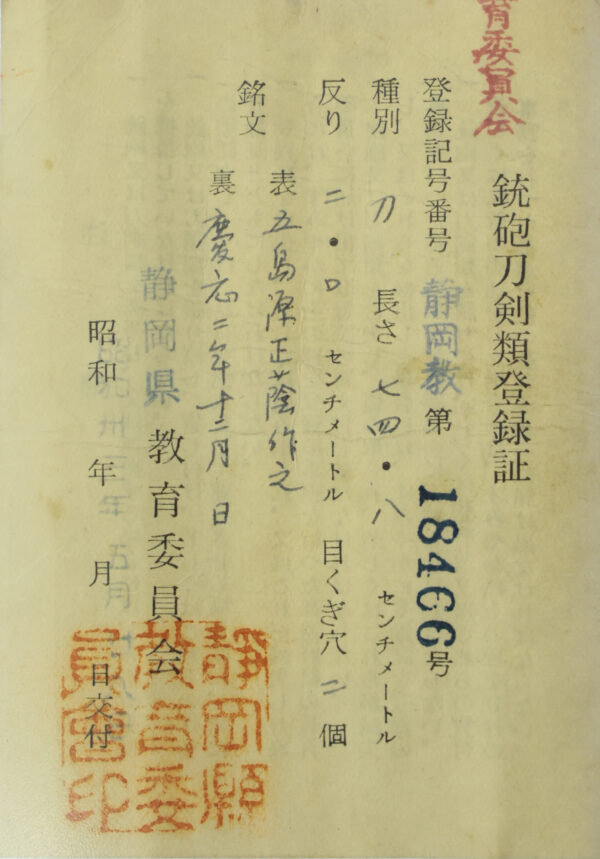 育委員会
銃砲刀剣類登録証
登録記号番号 静岡教 第 18466 号
種別 刀 長さ 七四・八 センチメートル
反り 二・〇 センチメートル 目くぎ穴 二 個
銘文
表 五島源正蔭作之
裏 慶応二年十二月 日
静岡県 教育委員会
昭和 年 月 日交付
昭和卅 年 五月
静岡縣
教育委
員會印